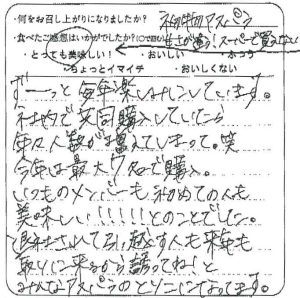 ・何をお召し上がりになりましたか？ 初物アスパラ
・食べたご感想はいかがでしたか？(にて囲む) 甘さが違う！スーパーで買えない
・とっても美味しい！ ・おいしい ・ふつう
・ちょっとイマイチ ・おいしくない
ずーっと毎年楽しみにしています。
社内で共同購入していたら
年々人数が増えてしまって。笑
今年は最大9名で購入。
いつものメンバーも初めての人も
美味しい！！！！！！とのことでした。
退社されてる人も来年も
取りに来るから誘ってね！と
みんなアスパラのとりこになってます。